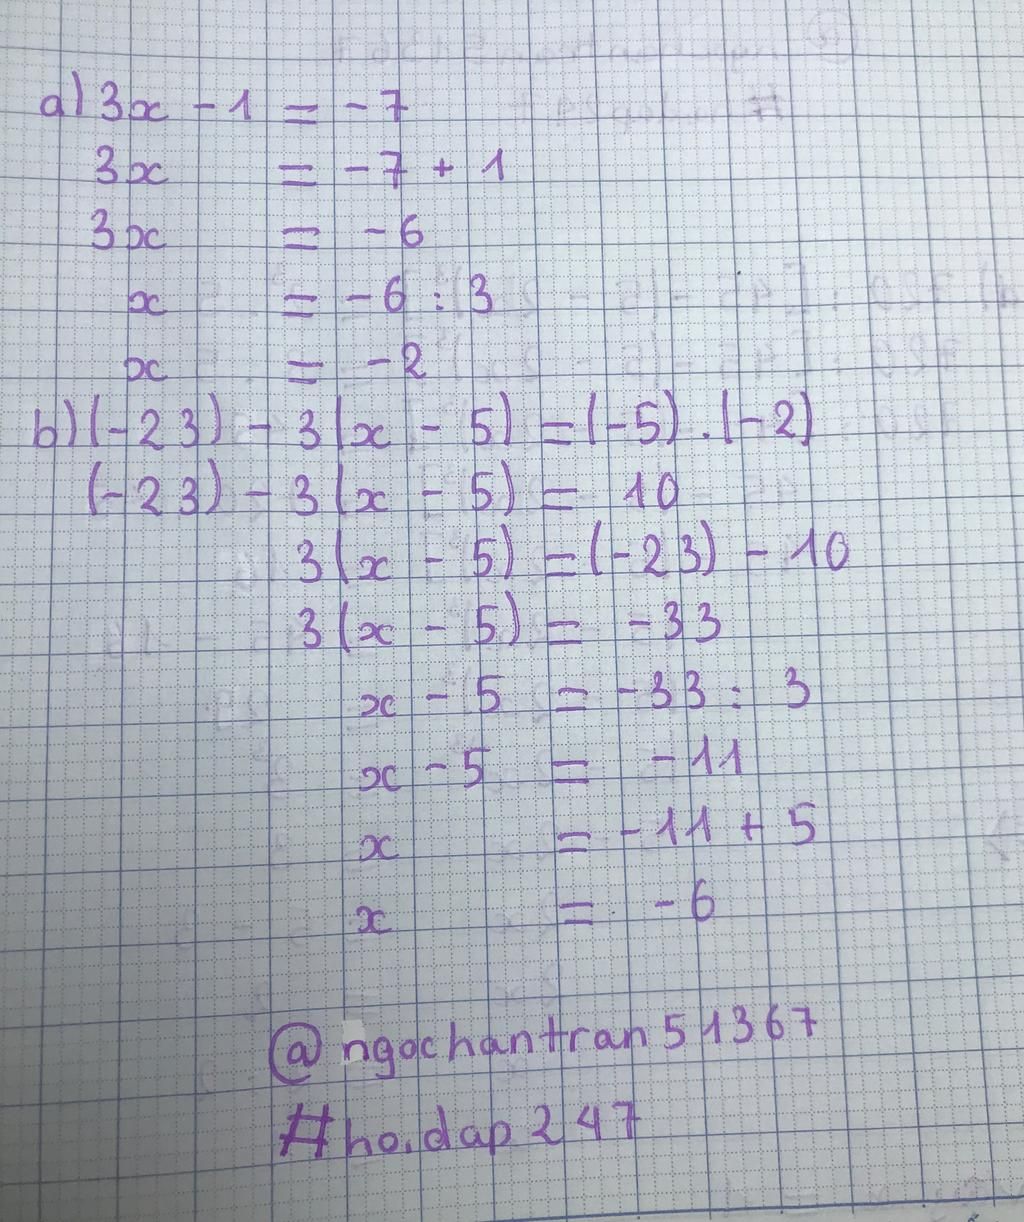 a) 3x - 1 = -7
3x = -7 + 1
3x = -6
x = -6 : 3
x = -2
b) (-23) - 3(x - 5) = (-5) . (-2)
(-23) - 3(x - 5) = 10
3(x - 5) = (-23) - 10
3(x - 5) = -33
x - 5 = -33 : 3
x - 5 = -11
x = -11 + 5
x = -6
@ngochantran51367
#hoidap247